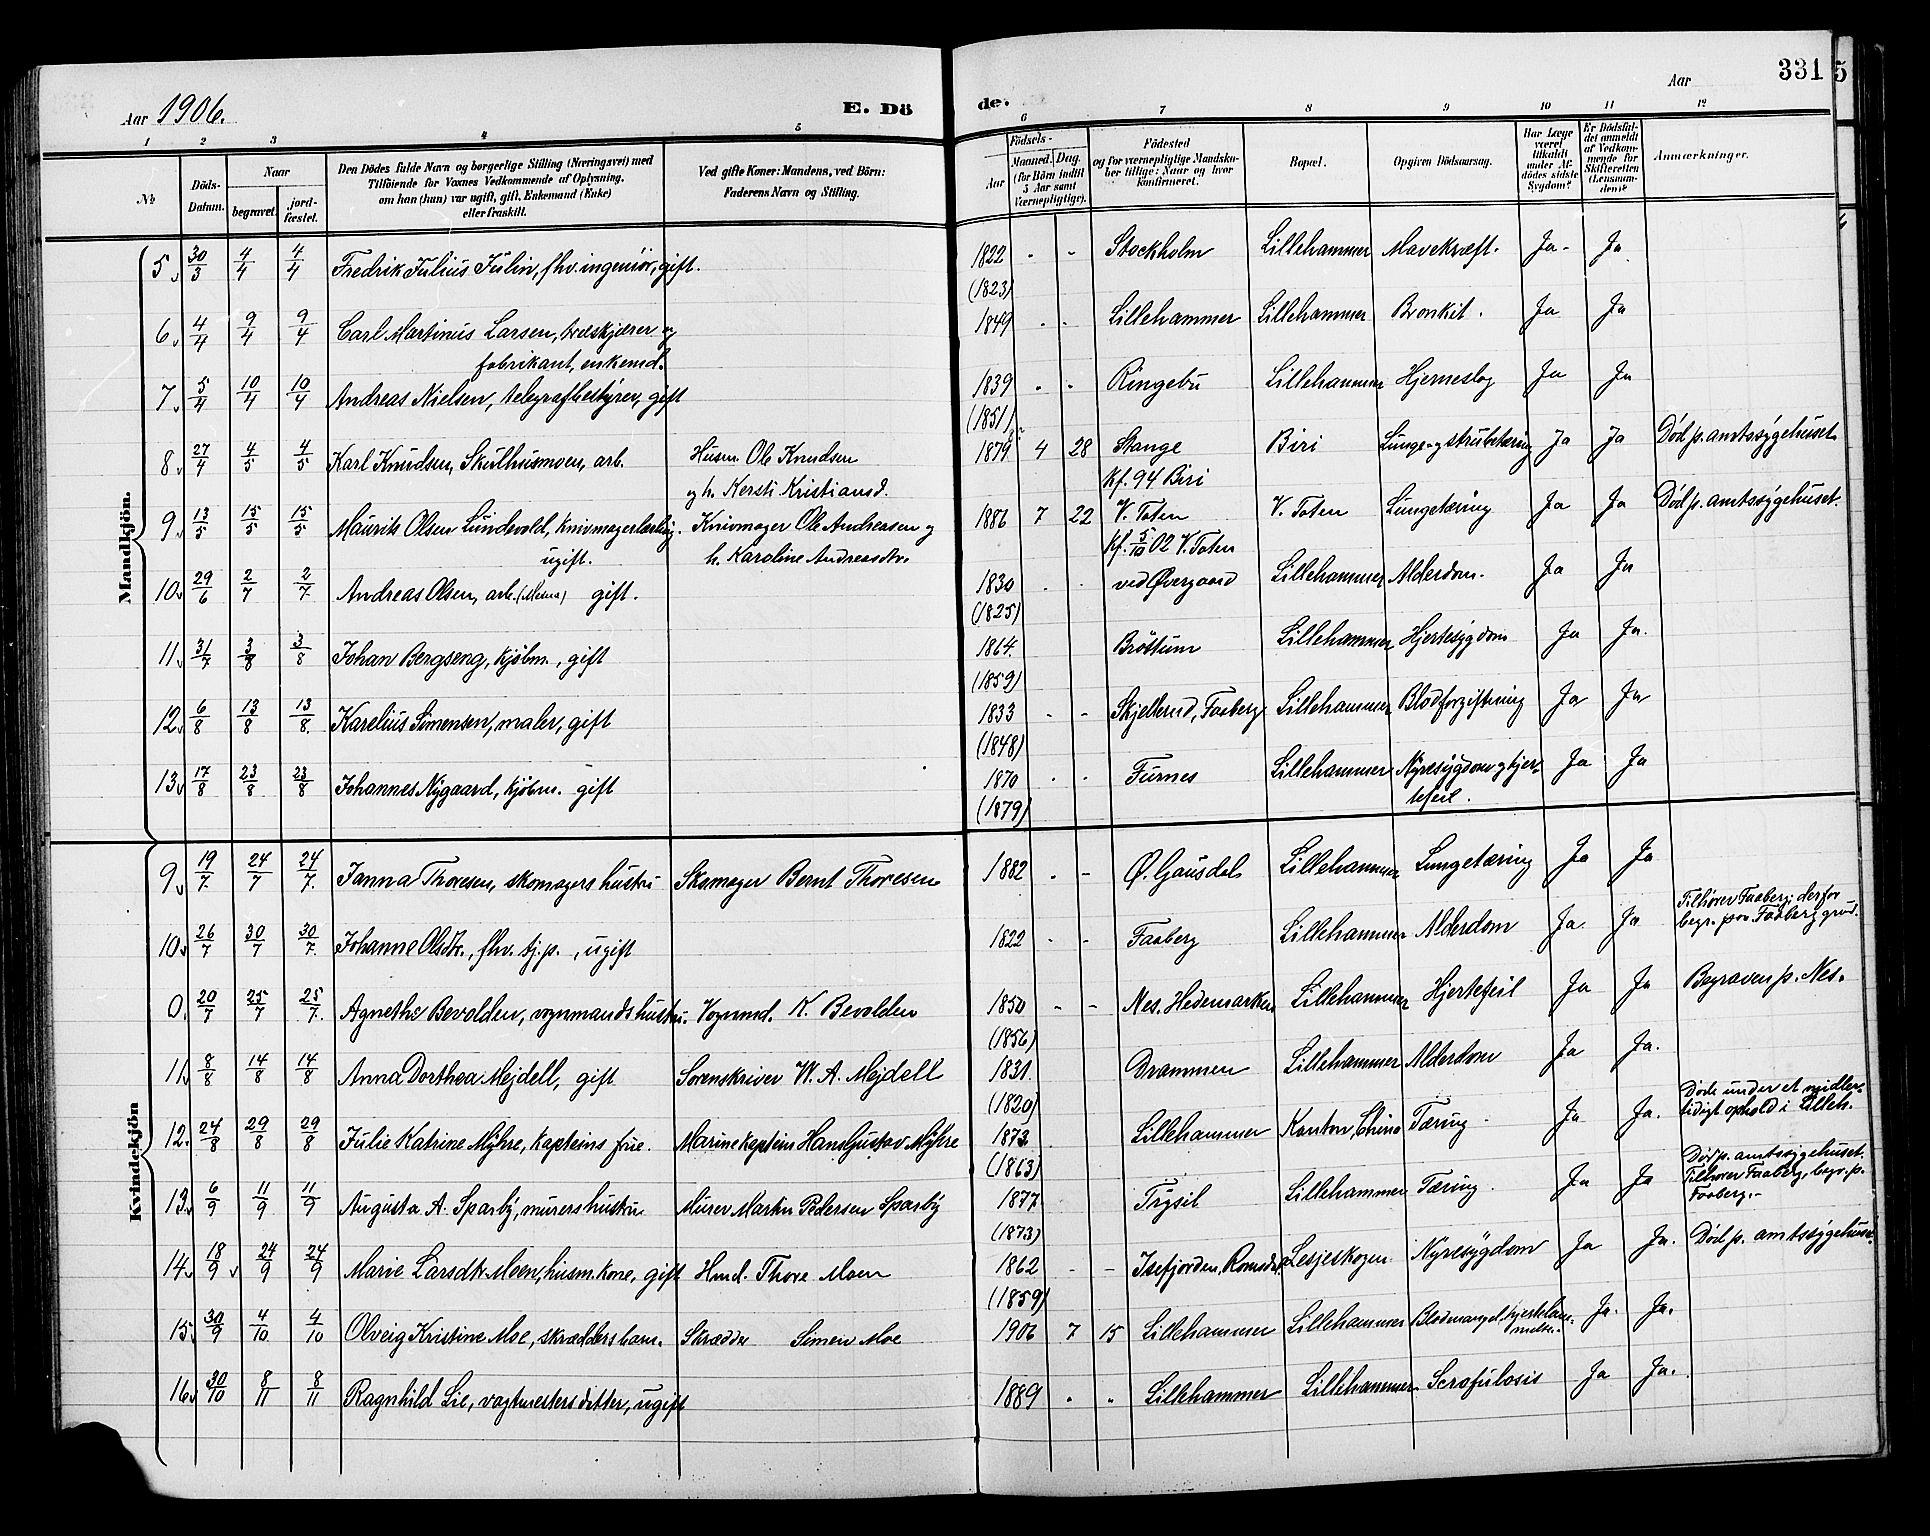 Aar 1906.
E. Dö
de.
Aar
331
5
1 2 3 4 5 6 7 8 9 10 11 12
No
Döds-Datum.
Naar
begravet.
jord-fæstet.
Den Dödes fulde Navn og borgerlige Stilling (Næringsvei) med
Tilföiende for Voxnes Vedkommende af Oplysning,
om han (hun) var ugift, gift, Enkemand (Enke)
eller fraskilt.
Ved gifte Koner: Mandens, ved Börn:
Faderens Navn og Stilling.
Födsels-
Aar
Maaned. Dag.
(for Börn indtil
5 Aar samt
Værnepligtige).
Födested
og for værnepligtige Mandskaber tillige: Naar og hvor
konfirmeret.
Bopæl.
Opgiven Dödsaarsag.
Har Læge været tilkaldt under Afdödes sidste Sygdom?
Er Dödsfaldet anmeldt af Vedkommende for Skifteretten (Lensmanden)?
Anmærkninger.
Mandkjön.
5 30/3 4/4 4/4 Fredrik Julius Julin, fhv. ingeniör, gift. 1822 - - Stockholm Lillehammer Mavekræft. Ja - Ja
(1823)
6 4/4 9/4 9/4 Carl Martinus Larsen, træskjærer og 1849 - - Lillehammer Lillehammer Bronkit. Ja Ja
fabrikant, enkemd.
7 5/4 10/4 10/4 Andreas Nielsen, telegrafbestyrer, gift 1839 - - Ringebu Lillehammer Hjerneslag Ja Ja
(1851)
8 27/4 4/5 4/5 Karl Knudsen, Skulhusmoen, arb. Husm. Ole Knudsen 1879 4 28 Stange Biri Lunge- og strubetæring Ja Ja Död p. amtssygehuset
og h. Kersti Kristiansd. Kf. 94 Biri
9 13/5 15/5 15/5 Maurits Olsen Lundvold, knivmagerlærling. Knivmager Ole Andreasen og 1886 7 22 V. Toten V. Toten Lungetæring Ja Ja Död p. amtssygehuset.
ugift. h. Karoline Andreasdtr. Kf. 5/10 02 V. Toten
10 29/6 2/7 2/7 Andreas Olsen, arb. (Mesna) gift. 1830 - - ved Övergaard Lillehammer Alderdom. Ja Ja
(1825)
11 31/7 3/8 3/8 Johan Bergseng, kjöbm., gift 1864 Bröttum Lillehammer Hjertesygdom Ja Ja.
(1859)
12 6/8 13/8 13/8. Karelius Simensen, maler, gift 1833 - - Skjellerud, Faaberg Lillehammer Blodforgiftning Ja Ja
(1848)
13 17/8 23/8 23/8 Johannes Nygaard, kjöbm. gift 1870 - - Furnes Lillehammer Nyresygdom og hjer- Ja Ja
(1879) tefeil.
Kvindekjön
9 19/7 24/7 24/7. Janna Thoresen, skomagers hustru Skomager Bernt Thoresen 1882 - - Ö. Gausdal Lillehammer Lungetæring Ja Ja
10 26/7 30/7 30/7. Johanne Olsdtr., fhv. tj.p., ugift 1822 - - Faaberg Lillehammer Alderdom Ja. Ja Tilhörer Faaberg; derfor
begr. paa Faaberg grvd.
0. 20/7 25/7 25/7. Agnethe Bevolden, vognmands hustru. Vognmd. K. Bevolden 1850 - - Nes. Hedemarken Lillehammer Hjertefeil Ja Ja Begraven p. Nes.
(1856)
11 8/8 14/8 14/8 Anna Dorthea Mejdell, gift Sorenskriver W. A. Mejdell 1831. Drammen Lillehammer Alderdom Ja Ja.
(1820)
12. 24/8 29/8 29/8 Julie Katrine Myhre, kapteins frue. Marinekaptein Hans Gustav Myhre 1872 Lillehammer Kanton, China Tæring Ja Ja. Döde under et midler-
tidigt ophold i Lilleh.
(1863)
13 6/9 11/9 11/9 Augusta A. Sparby, murers hustru Murer Martin Pedersen Sparby 1877 Trysil Lillehammer Tæring. Ja Ja Död p. amtssygehuset.
Tilhörer Faaberg, begr. p.
Faaberg.-
(1873)
14 18/9 24/9 24/9 Marie Larsdtr. Moen, husm.kone, gift Hmd. Thore Moen 1862 - - Isefjorden, Romsdal Lesjeskogen Nyresygdom Ja Ja. Död p. amtssygehuset
(1859)
15 30/9 4/10 4/10 Olveig Kristine Moe, skrædders barn. Skrædder Simen Moe 1906 7 15 Lillehammer Lillehammer Blodmangel, hjertelam- Ja. Ja.
melse.
16 30/10 8/11 8/11 Ragnhild Lie, vagtmesters datter, ugift 1889 - - Lillehammer Lillehammer Scrofulosis Ja Ja.